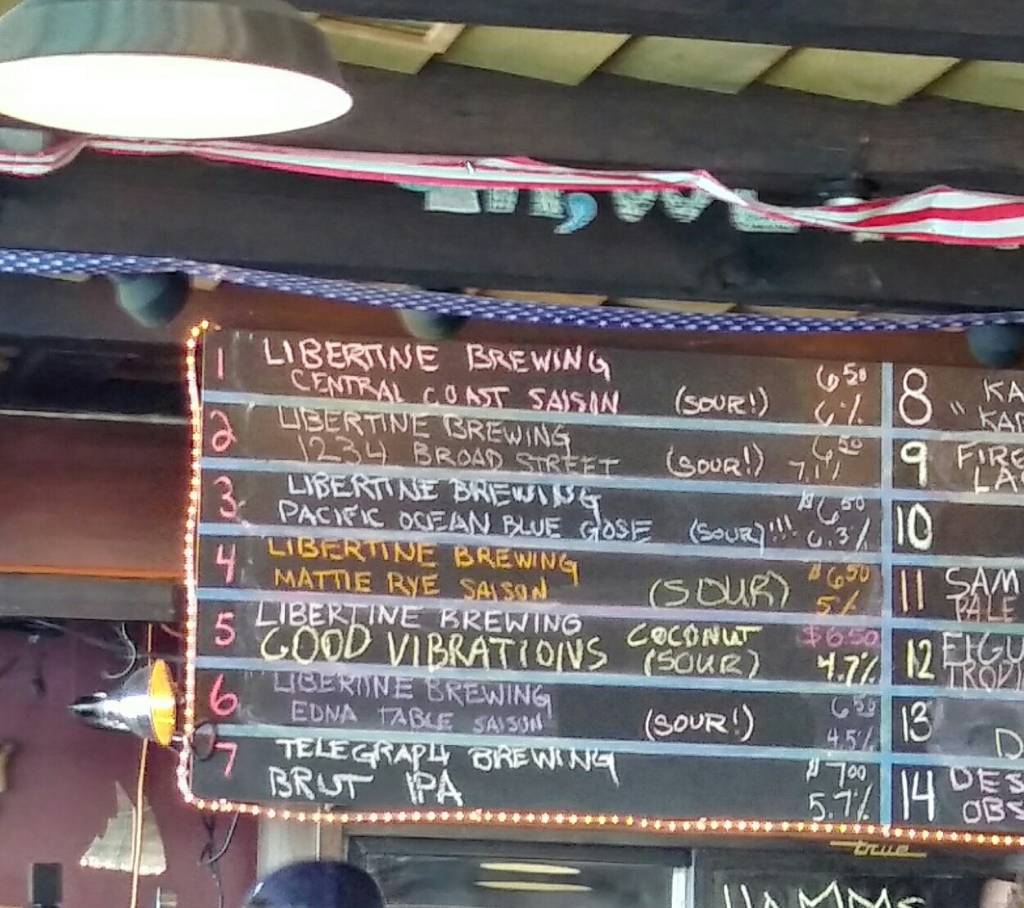 1 LIBERTINE BREWING 6.50
CENTRAL COAST SAISIN (SOUR!) 6%
2 LIBERTINE BREWING 6.50
1234 BROAD STREET (SOUR!) 7.1%
3 LIBERTINE BREWING $6.50
PACIFIC OCEAN BLUE GOSE (SOUR)!!! 6.3%
4 LIBERTINE BREWING $6.50
MATTIE RYE SAISON (SOUR) 5%
5 LIBERTINE BREWING COCONUT $6.50
GOOD VIBRATIONS (SOUR) 4.7%
6 LIBERTINE BREWING 6.50
EDNA TABLE SAISON (SOUR!) 4.5%
7 TELEGRAPH BREWING $7.00
BRUT IPA 5.7%
8 KA
" KAR
9 FIRE
LA
10
11 SAM
PALE
12 FIGU
TROPI
13
D
14 DES
OBS
true
HAMMS